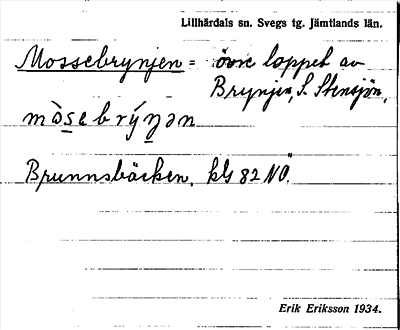 Lillhärdals sn. Svegs tg. Jämtlands län.
Mossebrynjen = övre loppet av
Brynjen, S. Stensjön,
mòsebrýnən
Brunnsbäcken. kbl 82 NO.
Erik Eriksson 1934.